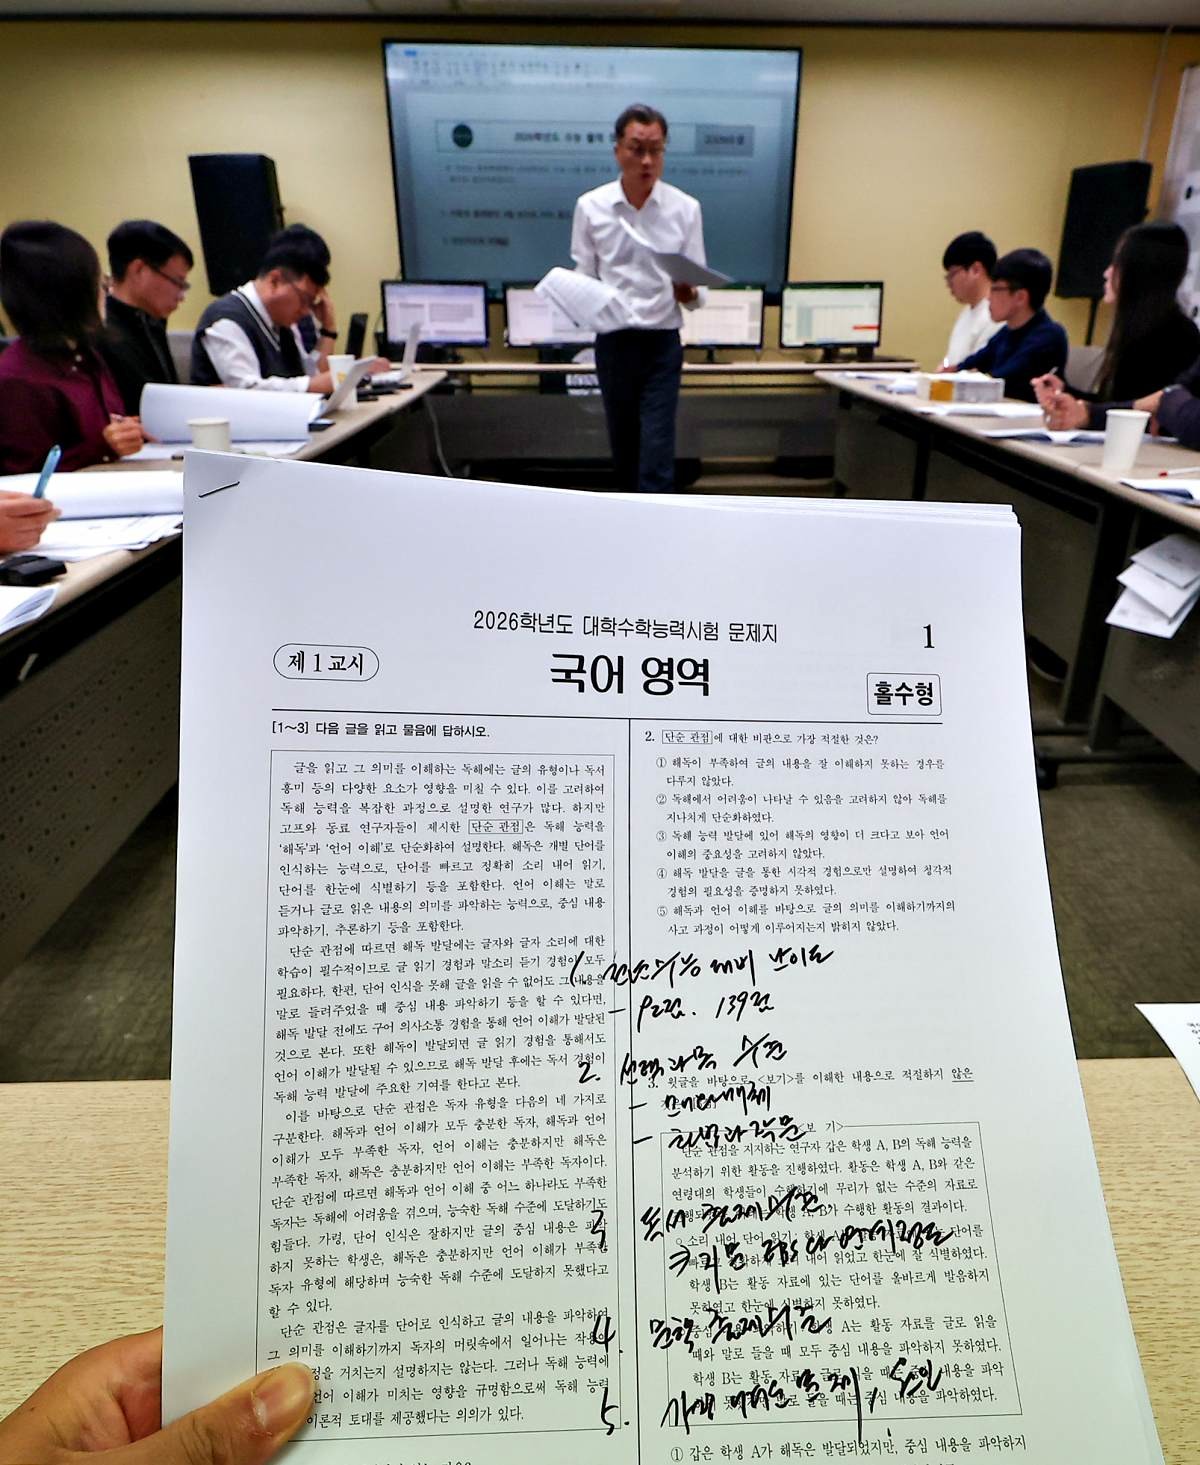 2026학년도 대학수학능력시험 문제지
1
제 1 교시
국어 영역
홀수형
[1~3] 다음 글을 읽고 물음에 답하시오.
글을 읽고 그 의미를 이해하는 독해에는 글의 유형이나 독서
흥미 등의 다양한 요소가 영향을 미칠 수 있다. 이를 고려하여
독해 능력을 복잡한 과정으로 설명한 연구가 많다. 하지만
고프와 동료 연구자들이 제시한 단순 관점은 독해 능력을
'해독'과 '언어 이해'로 단순화하여 설명한다. 해독은 개별 단어를
인식하는 능력으로, 단어를 빠르고 정확히 소리 내어 읽기,
단어를 한눈에 식별하기 등을 포함한다. 언어 이해는 말로
듣거나 글로 읽은 내용의 의미를 파악하는 능력으로, 중심 내용
파악하기, 추론하기 등을 포함한다.
단순 관점에 따르면 해독 발달에는 글자와 글자 소리에 대한
학습이 필수적이므로 글 읽기 경험과 말소리 듣기 경험이 모두
필요하다. 한편, 단어 인식을 못해 글을 읽을 수 없어도 그 내용을
말로 들려주었을 때 중심 내용 파악하기 등을 할 수 있다면,
해독 발달 전에도 구어 의사소통 경험을 통해 언어 이해가 발달된
것으로 본다. 또한 해독이 발달되면 글 읽기 경험을 통해서도
언어 이해가 발달될 수 있으므로 해독 발달 후에는 독서 경험이
독해 능력 발달에 주요한 기여를 한다고 본다.
이를 바탕으로 단순 관점은 독자 유형을 다음의 네 가지로
구분한다. 해독과 언어 이해가 모두 충분한 독자, 해독과 언어
이해가 모두 부족한 독자, 언어 이해는 충분하지만 해독은
부족한 독자, 해독은 충분하지만 언어 이해는 부족한 독자이다.
단순 관점에 따르면 해독과 언어 이해 중 어느 하나라도 부족한
독자는 독해에 어려움을 겪으며, 능숙한 독해 수준에 도달하기도
힘들다. 가령, 단어 인식은 잘하지만 글의 중심 내용은 파악
하지 못하는 학생은, 해독은 충분하지만 언어 이해가 부족한
독자 유형에 해당하며 능숙한 독해 수준에 도달하지 못했다고
할 수 있다.
단순 관점은 글자를 단어로 인식하고 글의 내용을 파악하여
그 의미를 이해하기까지 독자의 머릿속에서 일어나는 작용이
거치는지 설명하지는 않는다. 그러나 독해 능력에
언어 이해가 미치는 영향을 규명함으로써 독해 능력
이론적 토대를 제공했다는 의의가 있다.
2. 단순 관점에 대한 비판으로 가장 적절한 것은?
① 해독이 부족하여 글의 내용을 잘 이해하지 못하는 경우를
다루지 않았다.
② 독해에서 어려움이 나타날 수 있음을 고려하지 않아 독해를
지나치게 단순화하였다.
③ 독해 능력 발달에 있어 해독의 영향이 더 크다고 보아 언어
이해의 중요성을 고려하지 않았다.
④ 해독 발달을 글을 통한 시각적 경험으로만 설명하여 청각적
경험의 필요성을 증명하지 못하였다.
⑤ 해독과 언어 이해를 바탕으로 글의 의미를 이해하기까지의
사고 과정이 어떻게 이루어지는지 밝히지 않았다.
1. 전년수능 대비 난이도
139점
2. 선택과목 수준
3. 윗글을 바탕으로 <보기>를 이해한 내용으로 적절하지 않은
단순 관점을 지지하는 연구자 갑은 학생 A, B의 독해 능력을
분석하기 위한 활동을 진행하였다. 활동은 학생 A, B와 같은
연령대의 학생들이 수행하기에 무리가 없는 수준의 자료로
학생 A, B가 수행한 활동의 결과이다.
3 독서 출제수준
소리 내어 단어 읽기: 학생 A는 활동 자료에 단어를
소리 내어 읽었고 한눈에 잘 식별하였다.
학생 B는 활동 자료에 있는 단어를 올바르게 발음하지
못하였고 한눈에 식별하지 못하였다.
4. 문학 출제수준
학생 A는 활동 자료를 글로 읽을
때와 말로 들을 때 모두 중심 내용을 파악하지 못하였다.
학생 B는 활동 자료를 글로 읽을 때는 중심 내용을 파악
못했지만 말로 들을 때는 중심 내용을 파악하였다.
5.
① 갑은 학생 A가 해독은 발달되었지만, 중심 내용을 파악하지